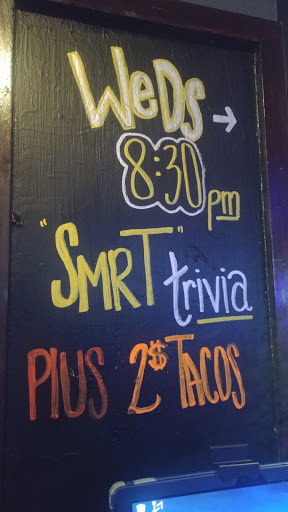 WeDs →
8:30 pm
"SMRT" trivia
PlUS 2$ TACOS